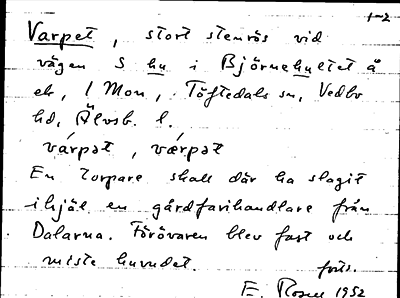 1-2
Varpet, stort stenrös vid
vägen S hu i Björnehultet å
eb, 1 Mon, Töftedals sn, Vedbo
hd, Älvsb. l.
várpət, værpət
En torpare skall där ha slagit
ihjäl en gårdfarihandlare från
Dalarna. Förövaren blev fast och
miste huvudet. forts.
E. Rosell 1952